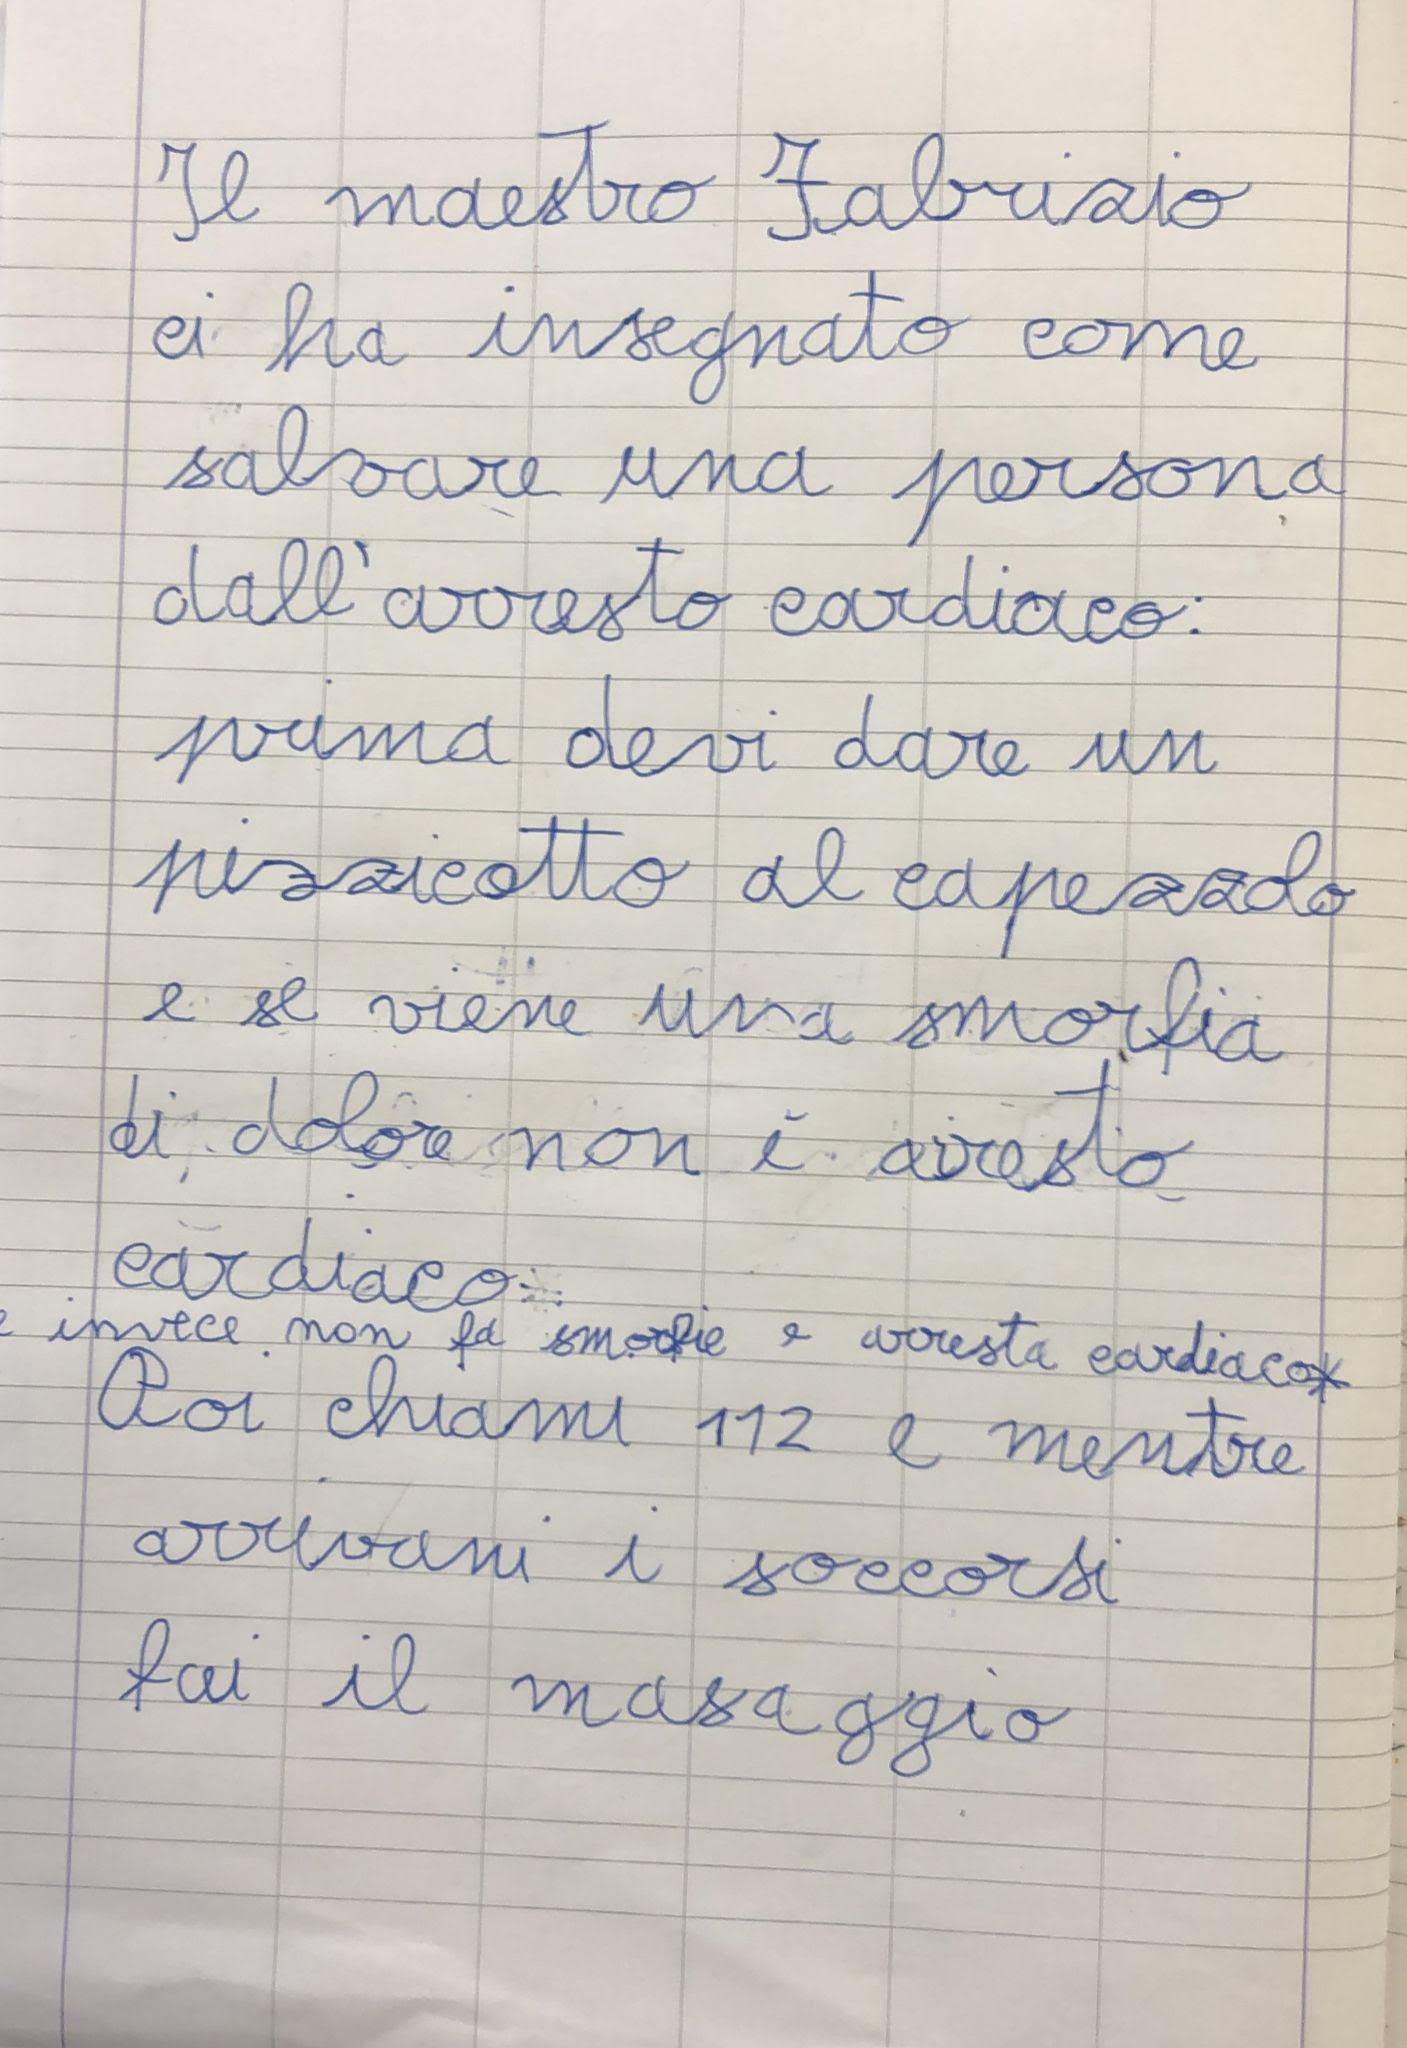 Il maestro Fabrizio
ci ha insegnato come
salvare una persona
dall'arresto cardiaco:
prima devi dare un
pizzicotto al capezzolo
e se viene una smorfia
di dolore non è arresto
cardiaco.
e invece non fa smorfie e arresta cardiaco*
Poi chiami 112 e mentre
arrivani i soccorsi
fai il masaggio